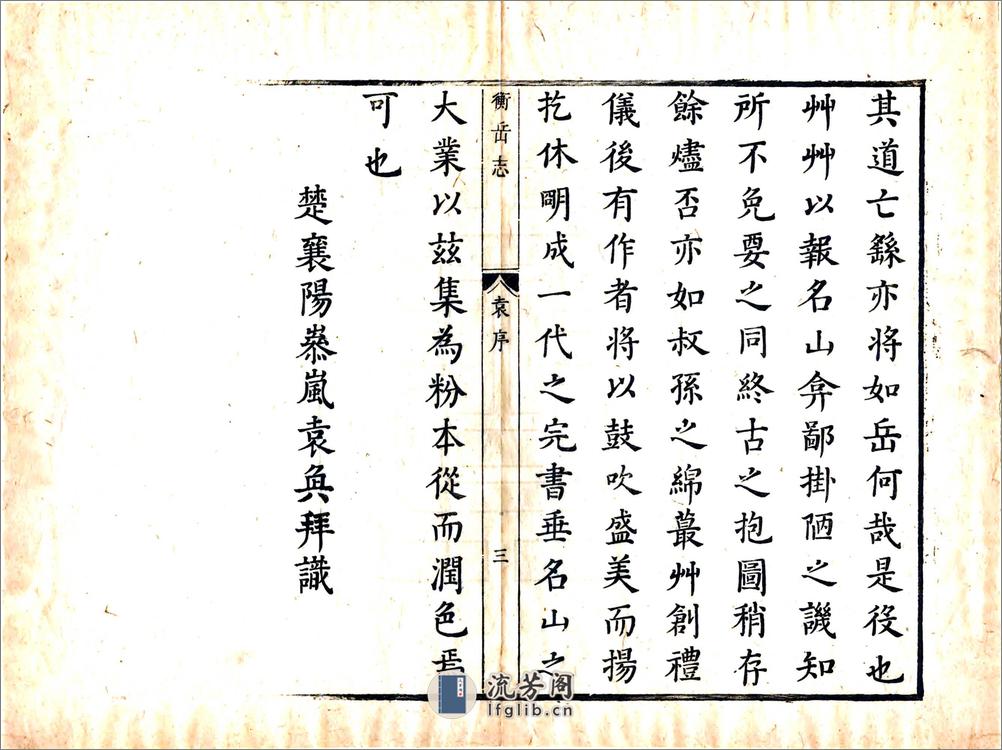 其道亡繇亦将如岳何哉是役也
艸艸以報名山弇鄙掛陋之譏知
所不免要之同終古之抱圖稍存
餘燼否亦如叔孫之綿蕞艸創禮
儀後有作者将以鼓吹盛美而揚
扢休明成一代之完書垂名山之
衡岳志
袁序
三
大業以茲集為粉本從而潤色焉
可也
楚襄陽嵾嵐袁奐拜識
流芳阁
lfglib.cn